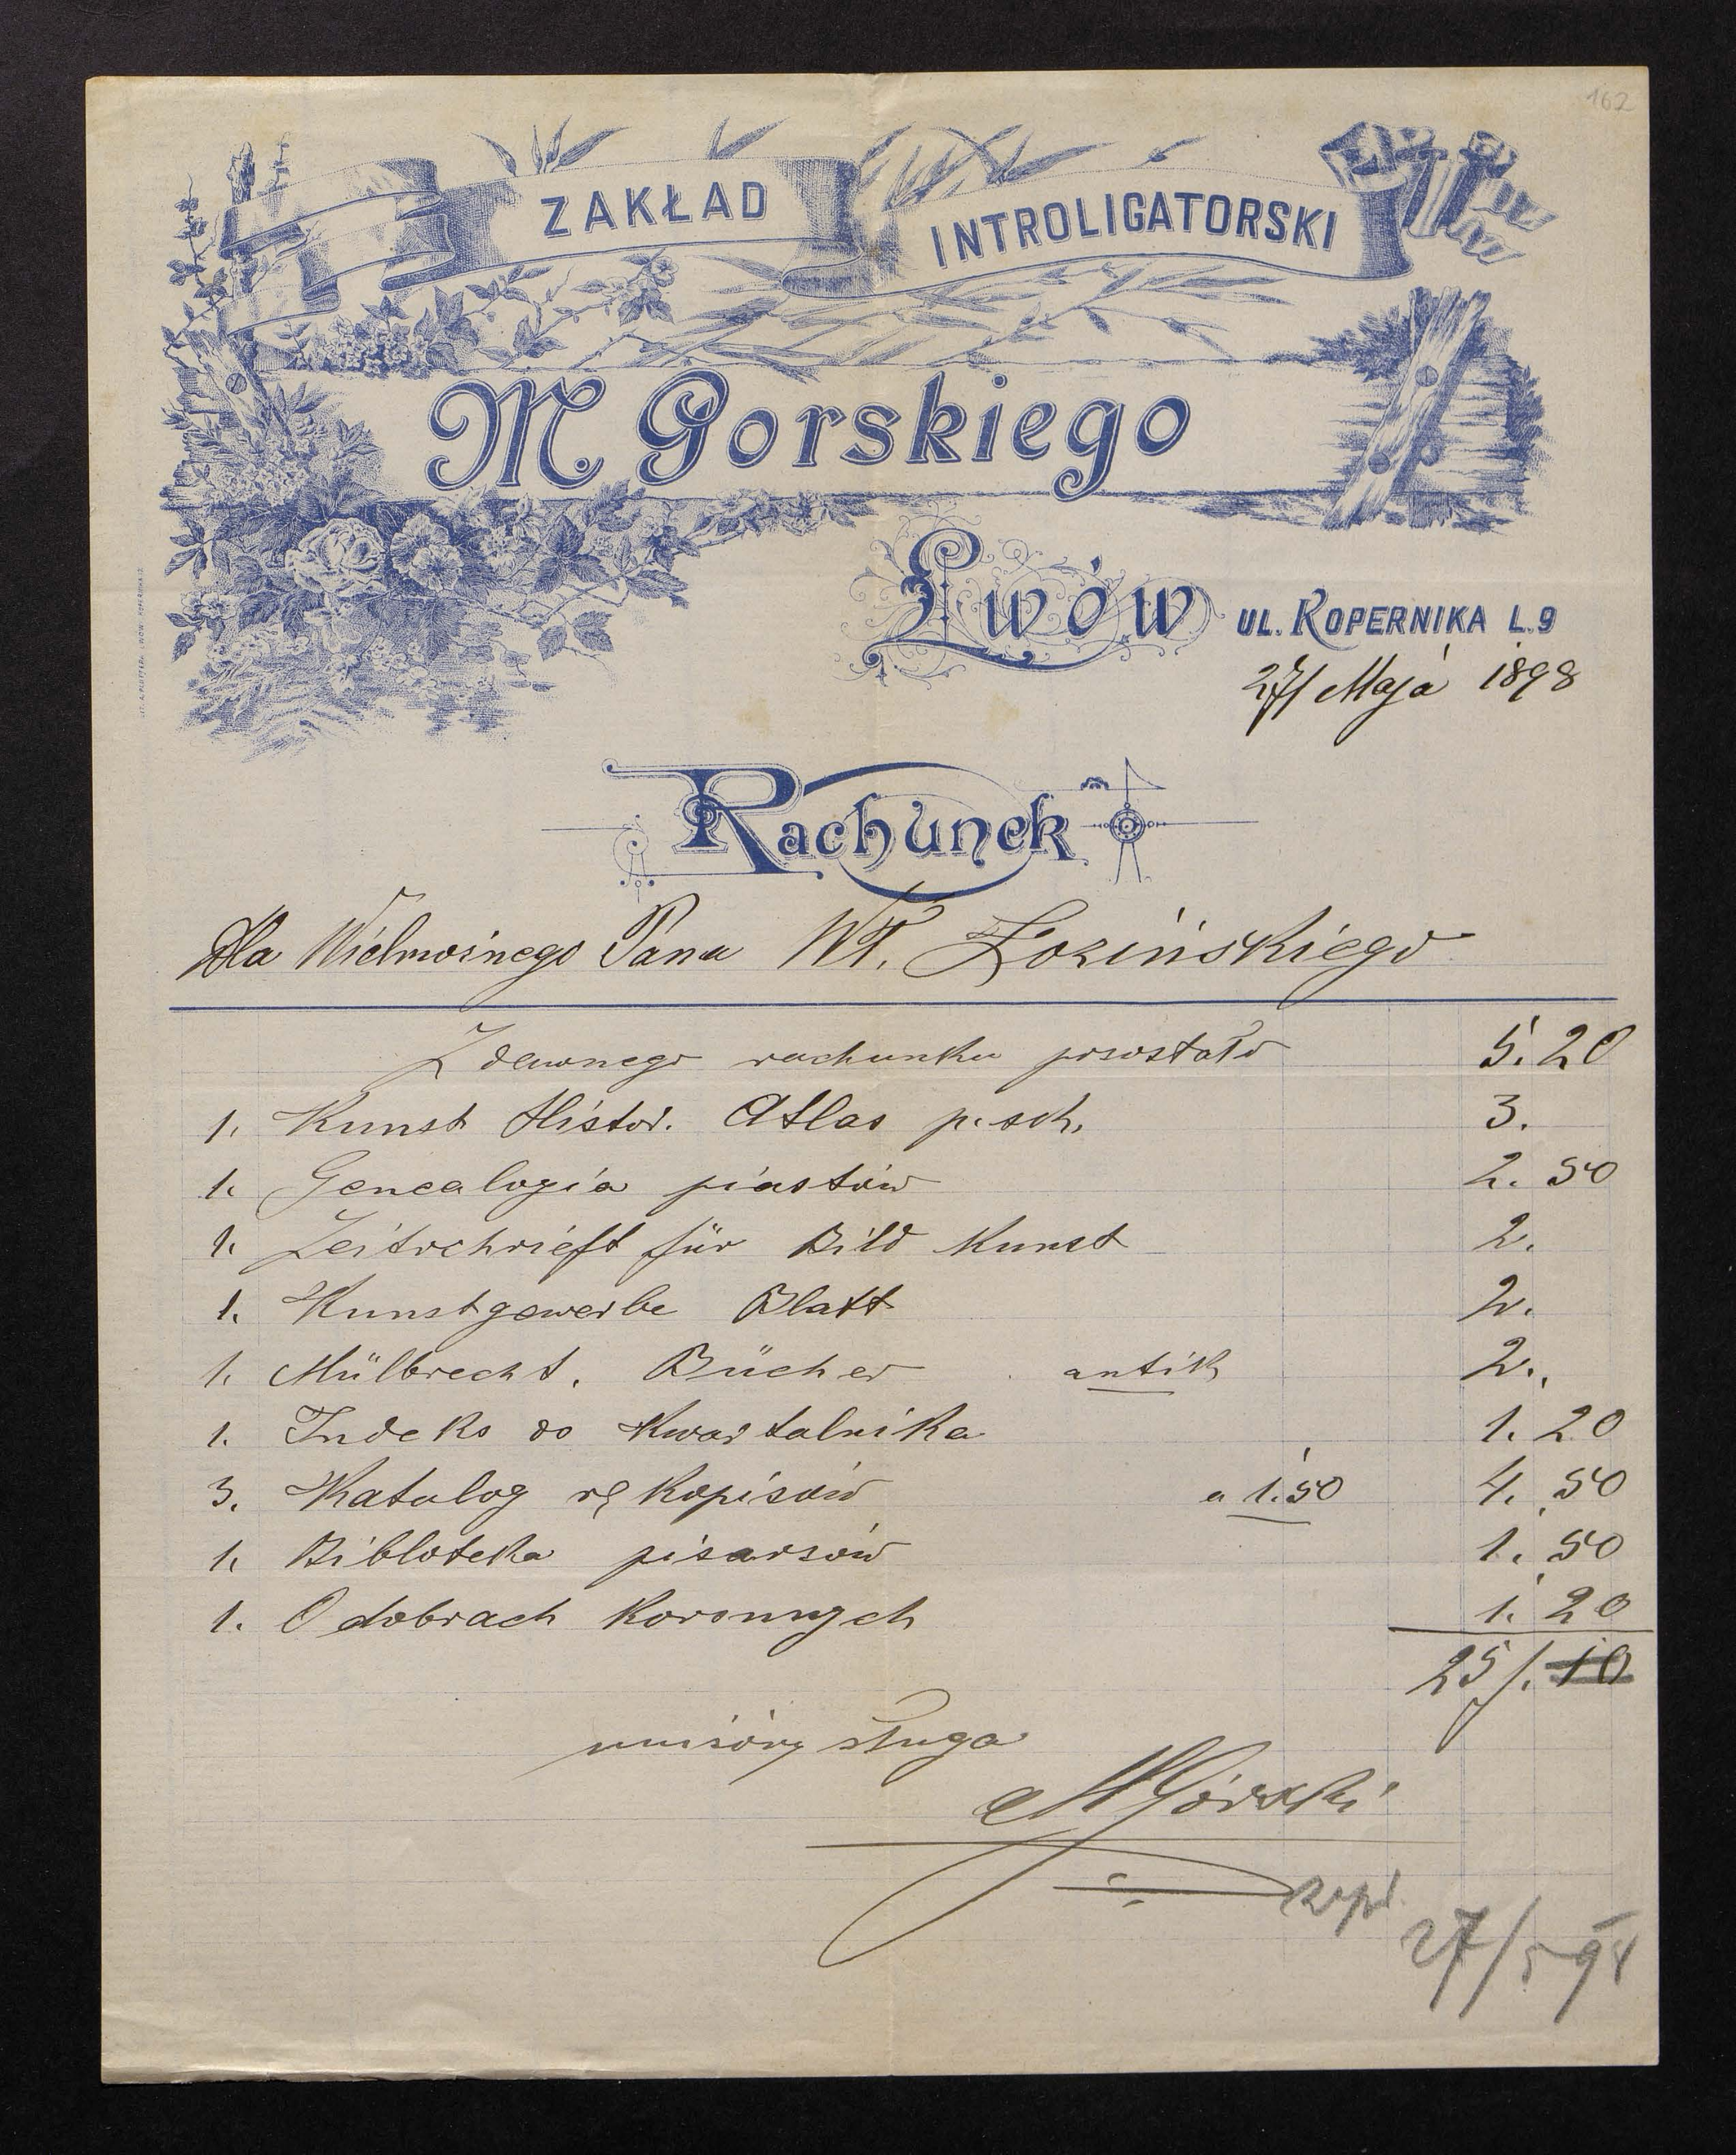 162
ZAKŁAD INTROLIGATORSKI
M Gorskiego
Lwów UL. KOPERNIKA L. 9
27/ Maja 1898
Rachunek
Dla Wielmoznego Pana Wł. Łozińskiego
Z dawnego rachunku pozostało 5. 20
1. Kunst Histor. Atlas p. sch. 3.
1. Genealogia piastów 2. 50
1. Zeitschrieft für Bild Kunst 2.
1. Kunstgewerbe Blatt 2.
1. Mülbrecht. Bücher antik 2.
1. Indeks do Kwartalnika 1. 20
3. Katalog rękopisów a 1.50 4. 50
1. Bibloteka pisarsów 1. 50
1. O dobrach koronnych 1. 20
25 /. 10
unisóny sługa
M Górski
27/5 98